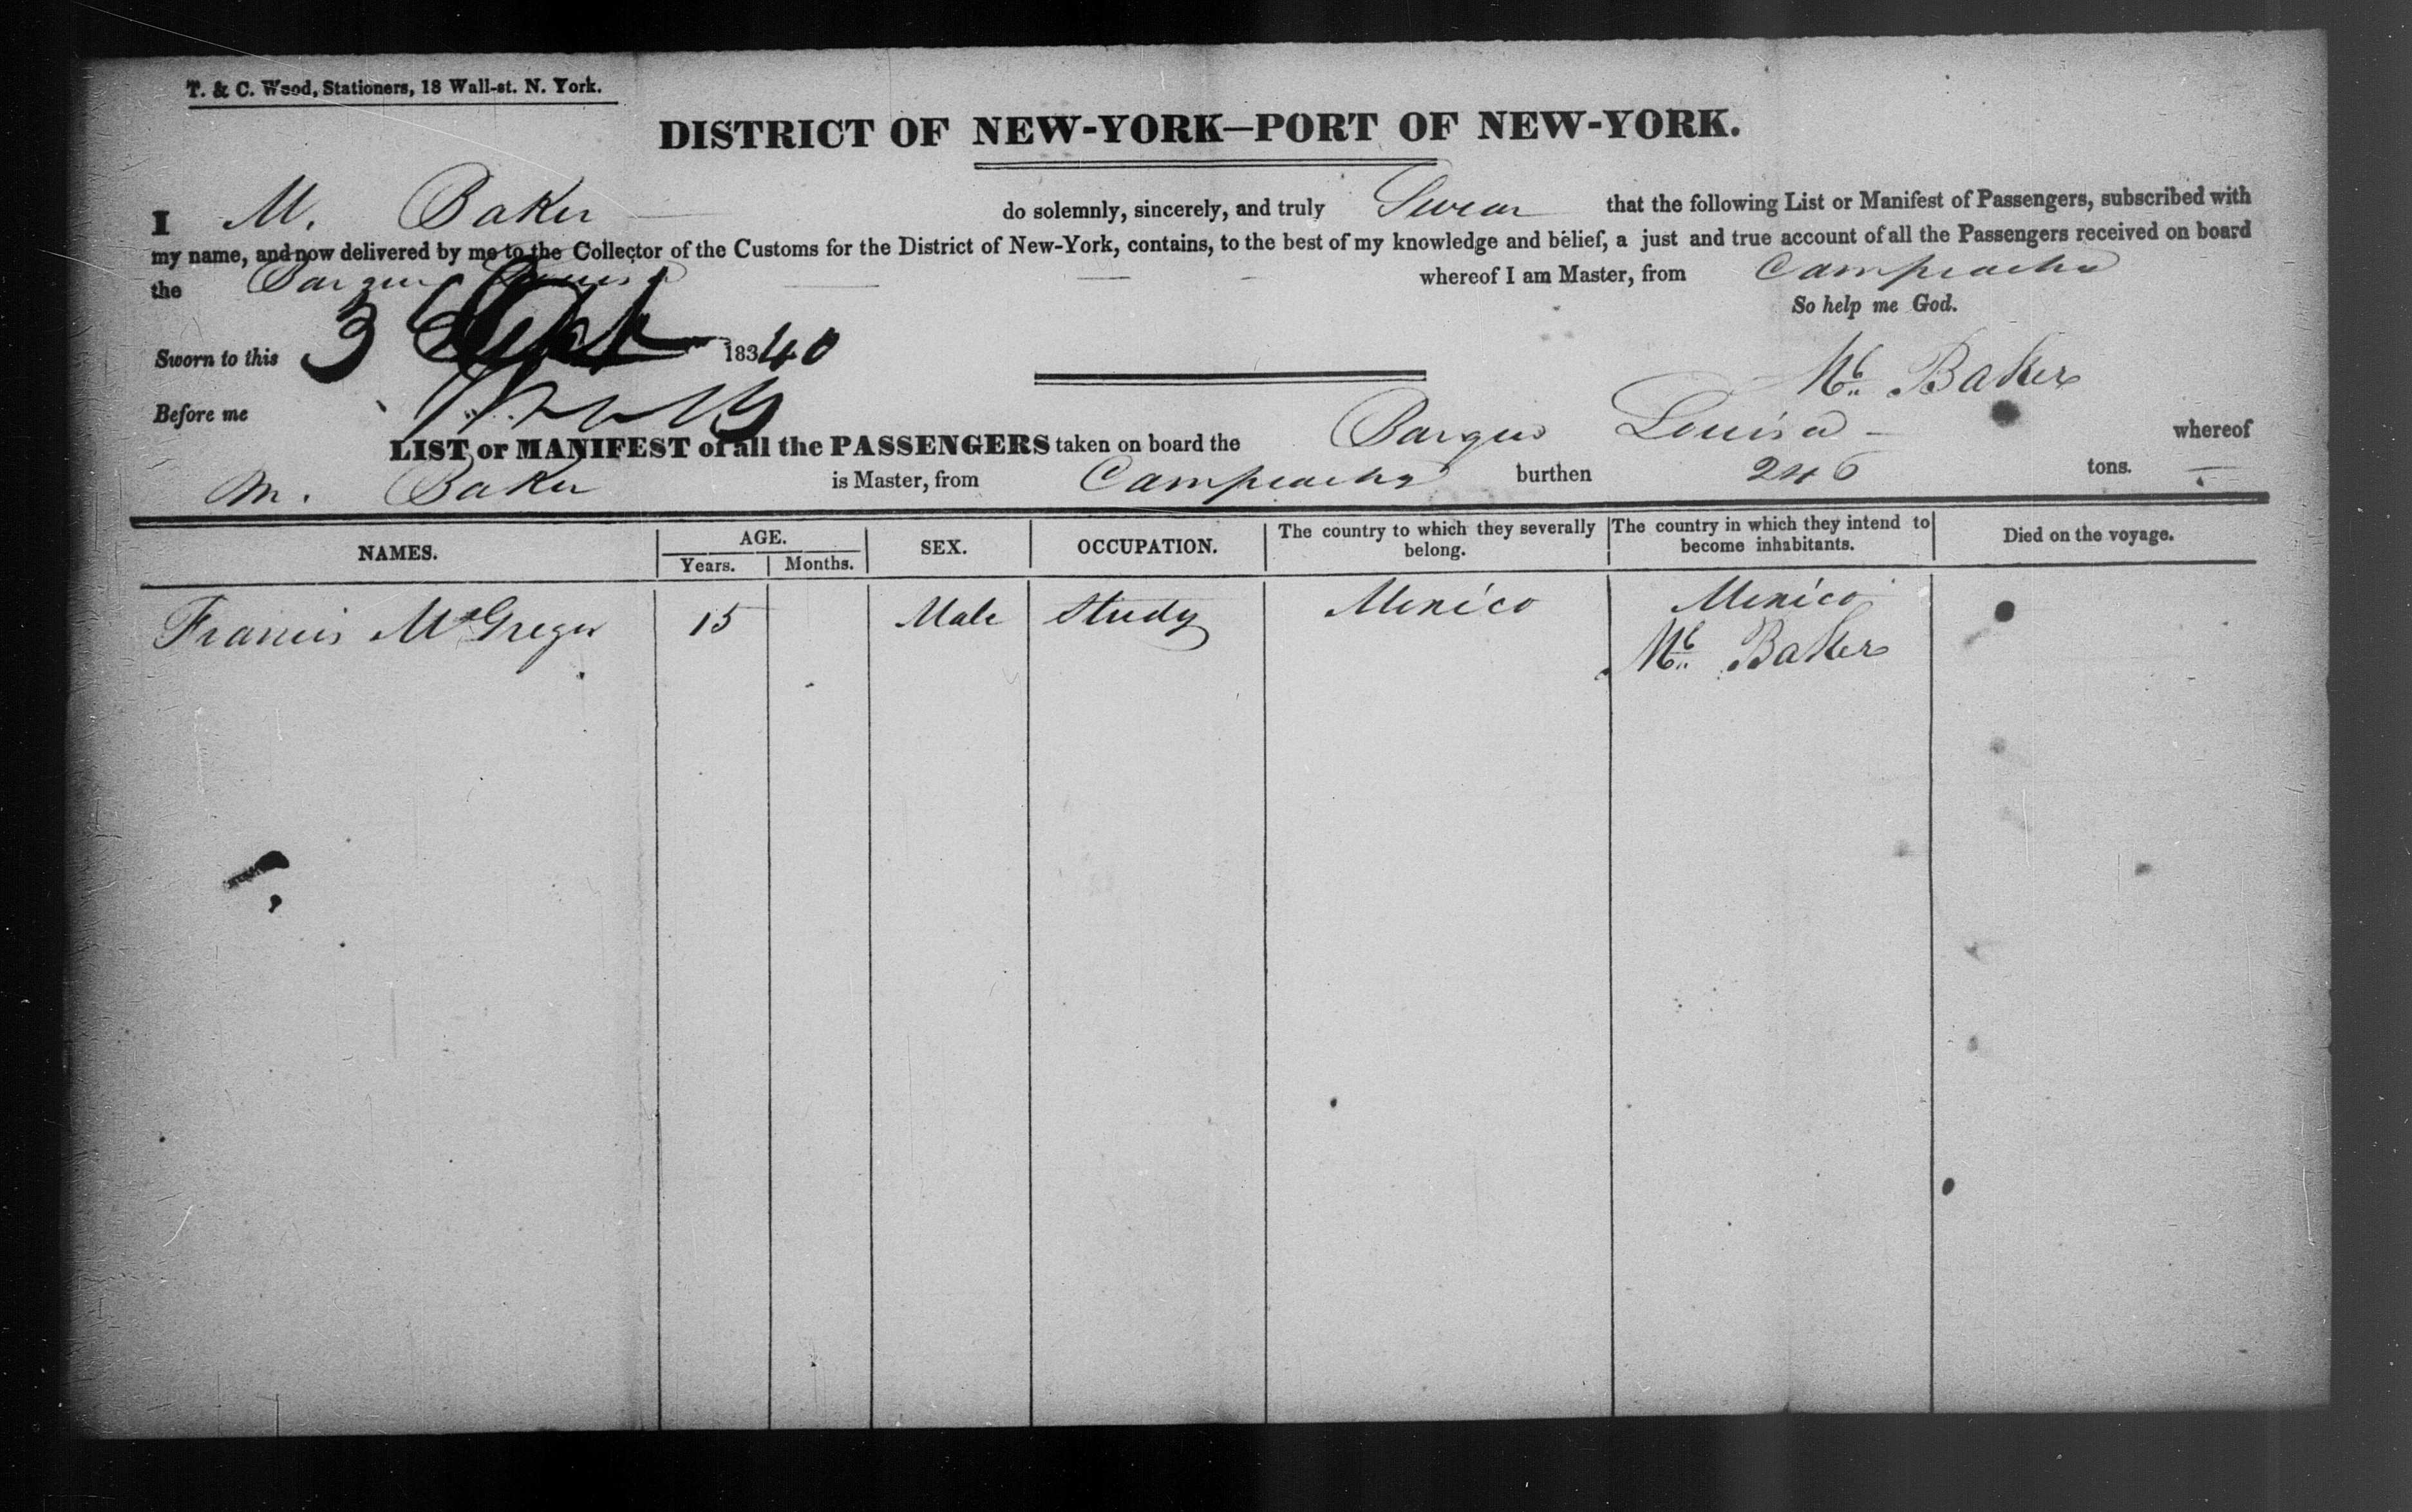 T. & C. Wood, Stationers, 18 Wall-st. N. York.
DISTRICT OF NEW-YORK—PORT OF NEW-YORK.
I M. Baker do solemnly, sincerely, and truly Swear that the following List or Manifest of Passengers, subscribed with
my name, and now delivered by me to the Collector of the Customs for the District of New-York, contains, to the best of my knowledge and belief, a just and true account of all the Passengers received on board
the Barque Louisa whereof I am Master, from Campeacha
So help me God.
Sworn to this 3 Sept 18340
Mc. Baker
Before me
LIST or MANIFEST of all the PASSENGERS taken on board the Barque Louisa whereof
M. Baker is Master, from Campeacha burthen 246 tons.
NAMES. AGE. Years. Months. SEX. OCCUPATION. The country to which they severally belong. The country in which they intend to become inhabitants. Died on the voyage.
Francis McGregor 15 Male Study Mexico Mexico
Mc. Baker